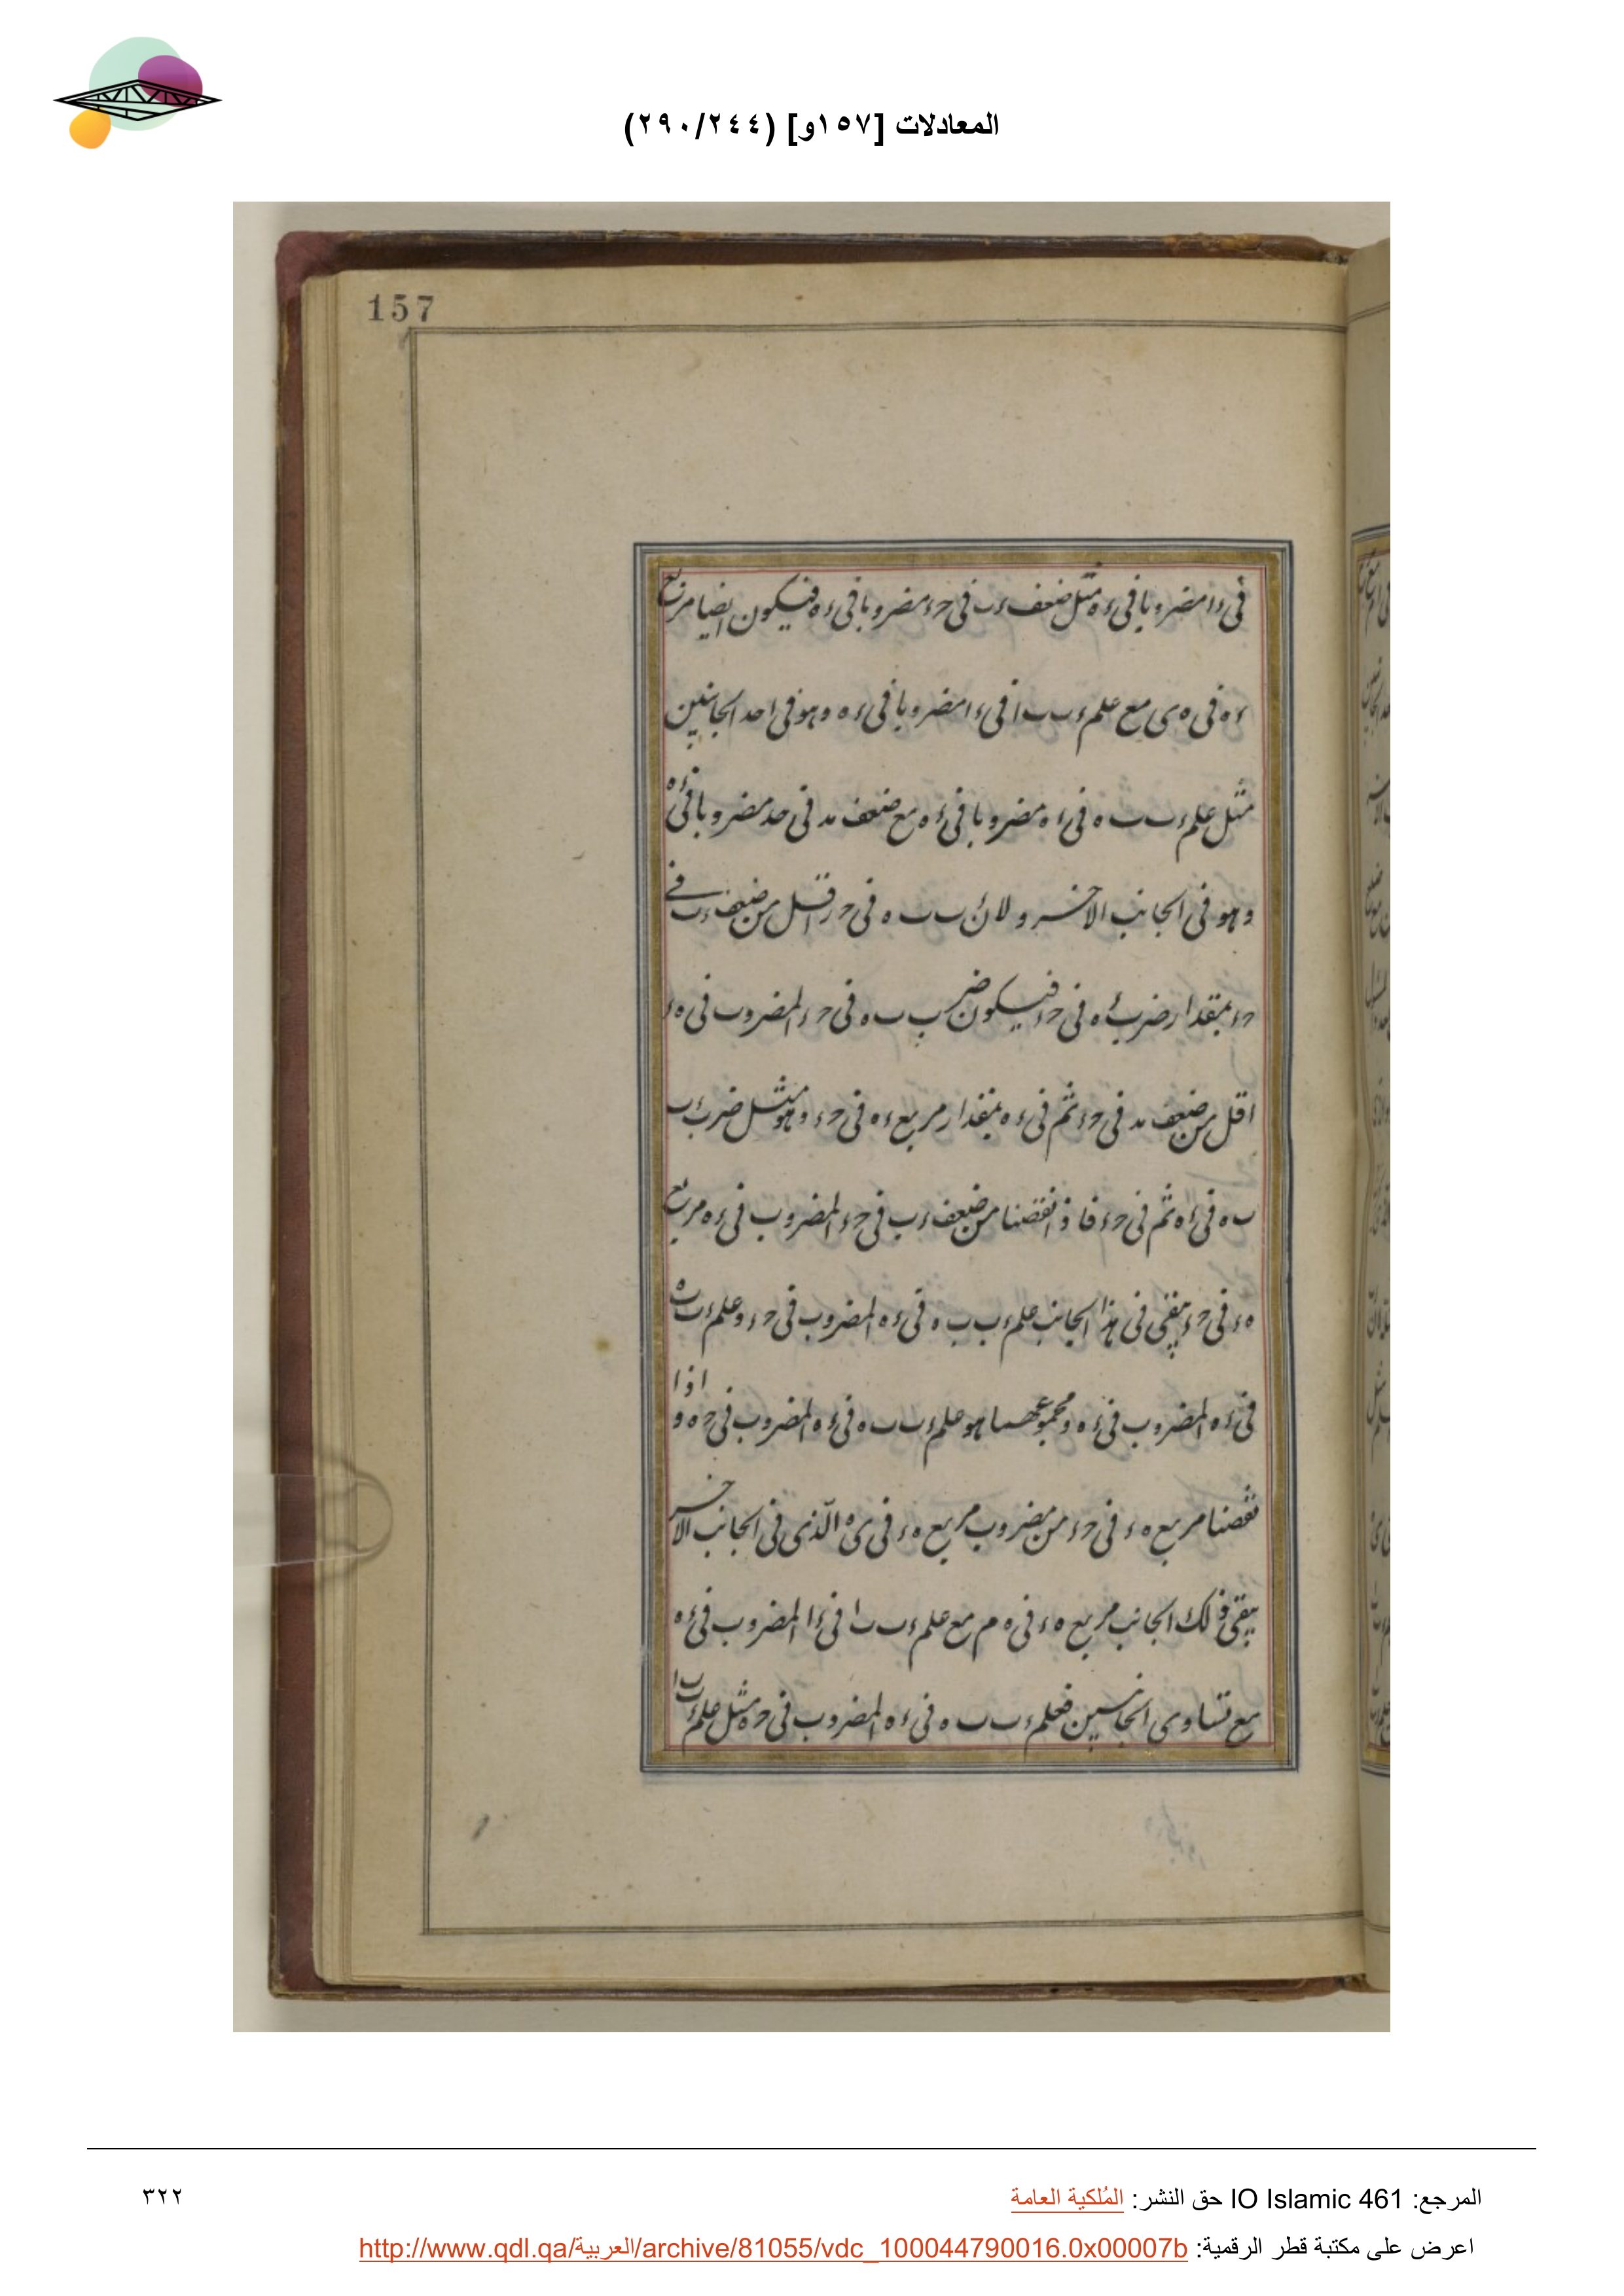 المعادلات [١٥٧و] (٢٩٠/٢٤٤)
157
فى ءا مضروبا فى ءه مثل ضعف ءب فى حء مضروبا فى ءه فيكون ايضا مربع
ءه فى ه ى مع علم ء ب ب ا فى ءا مضروبا فى ءه وهو فى احد الجانبين
مثل علم ء ب ب ه فى ءه مضروبا فى ءه مع ضعف مد فى حد مضروبا فى ءه
وهو فى الجانب الاخر ولان ب ب ه فى حر اقل من ضعف ءب فى
حء بمقدار ضرب ءه فى حء فيكون ضرب ب ب ه فى حء المضروب فى ه ء
اقل من ضعف مد فى حء ثم فى ءه بمقدار مربع ءه فى حء وهو مثل ضرب ء ب
ب ه فى ءه ثم فى حء فاذا نقصنا من ضعف ءب فى حء المضروب فى ءه مربع
ه ء فى حء يبقى فى هذا الجانب علم ء ب ب ه فى ءه المضروب فى حء وعلم ء ب ه
فى ءه المضروب فى ءه ومجموعهما هو علم ء ب ب ه فى ءه المضروب فى حه و اذا
نقصنا مربع ه ء فى حء من مضروب مربع ه ء فى ى ه الذى فى الجانب الاخر
يبقى ذلك الجانب مربع ه ء فى ه م مع علم ء ب ب ا فى ءا المضروب فى ءه
مع تساوى الجانبين فعلم ء ب ب ه فى ءه المضروب فى حه مثل علم ء ب ا
المرجع: IO Islamic 461 حق النشر: المُلكية العامة
٣٢٢
اعرض على مكتبة قطر الرقمية: http://www.qdl.qa/العربية/archive/81055/vdc_100044790016.0x00007b